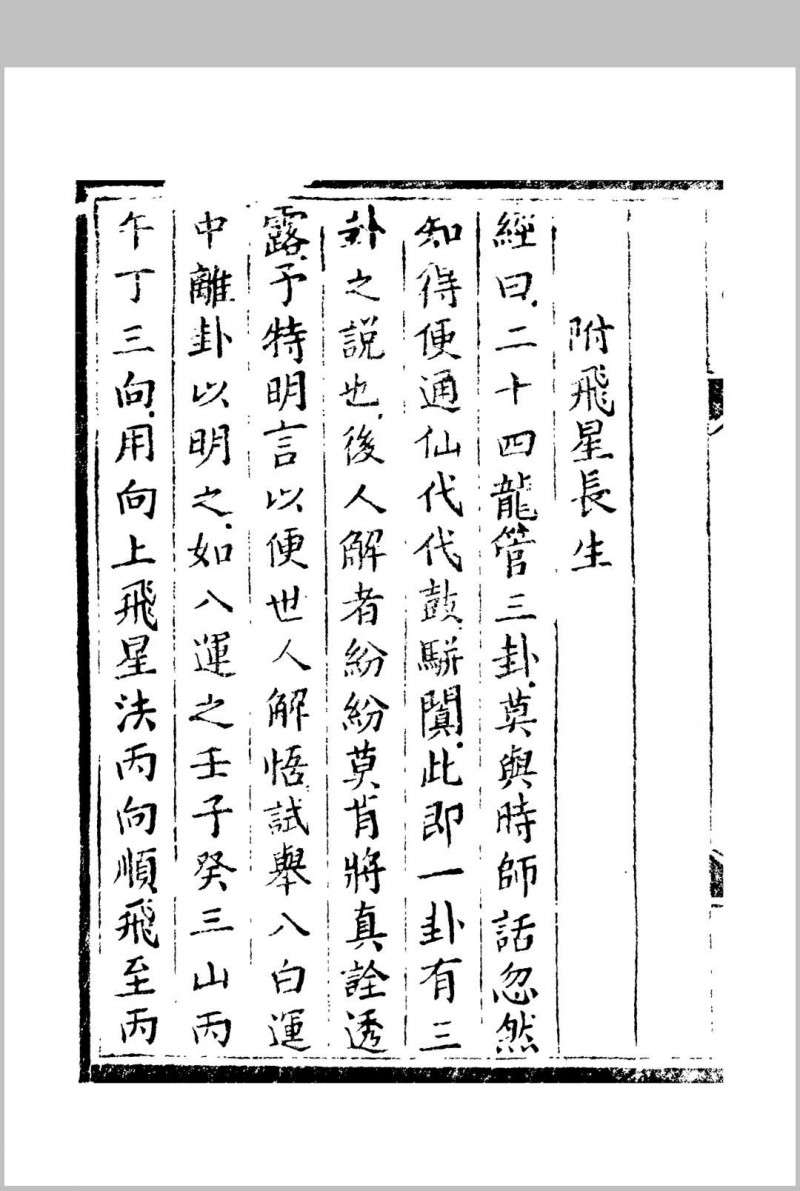 附飛星長生
經曰、二十四龍管三卦、莫與時師話忽然
知得便通仙代代鼓駢闐、此即一卦有三
卦之說也、後人解者紛紛莫肯將真詮透
露、予特明言以便世人解悟試舉八白運
中離卦以明之、如八運之壬子癸三山丙
午丁三向、用向上飛星法丙向順飛至丙